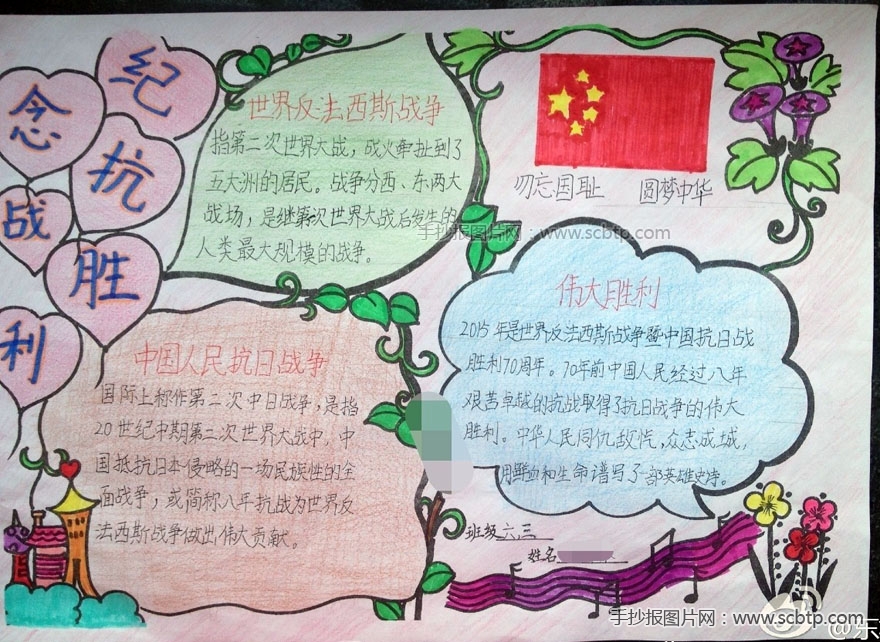 纪
念
抗
战
胜
利
世界反法西斯战争
指第二次世界大战，战火牵扯到了
五大洲的居民。战争分西、东两大
战场，是继第次世界大战后发生的
人类最大规模的战争。
勿忘国耻 圆梦中华
手抄报图片网：www.scbtp.com
伟大胜利
2015年是世界反法西斯战争暨中国抗日战
胜利70周年。70年前中国人民经过八年
艰苦卓越的抗战取得了抗日战争的伟大
胜利。中华人民同仇敌忾，众志成城，
用鲜血和生命谱写了部英雄史诗。
中国人民抗日战争
国际上称作第二次中日战争，是指
20世纪中期第二次世界大战中，中
国抵抗日本侵略的一场民族性的全
面战争，或简称八年抗战为世界反
法西斯战争做出伟大贡献。
班级六三
姓名
手抄报图片网：www.scbtp.com